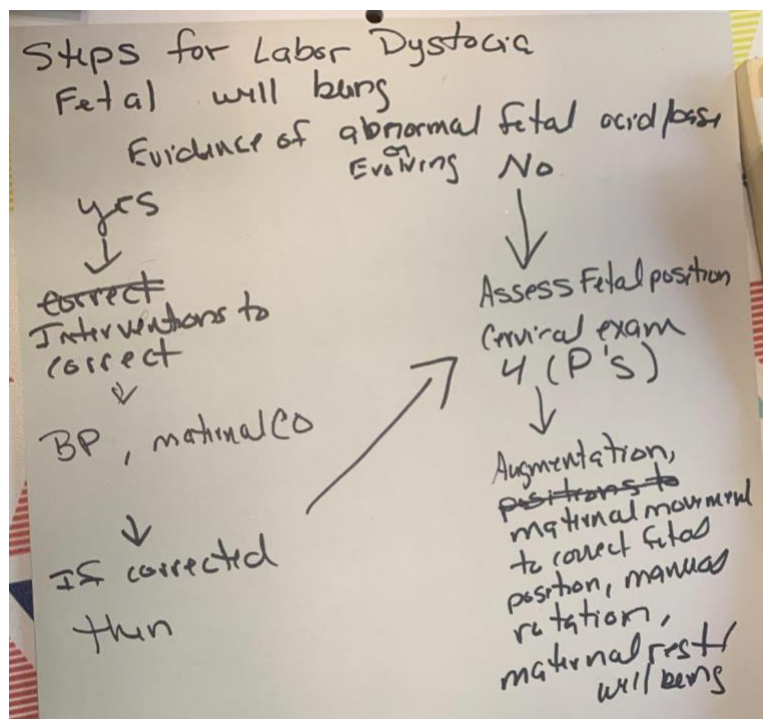 Steps for Labor Dystocia
Fetal well being
Evidence of abnormal fetal acid/base
or
Evolving
No
yes
correct
Interventions to
correct
BP, maternal CO
If corrected
then
Assess Fetal position
Cervical exam
4 (P's)
Augmentation,
positions to
maternal movement
to correct fetal
position, manual
rotation,
maternal rest/
well being